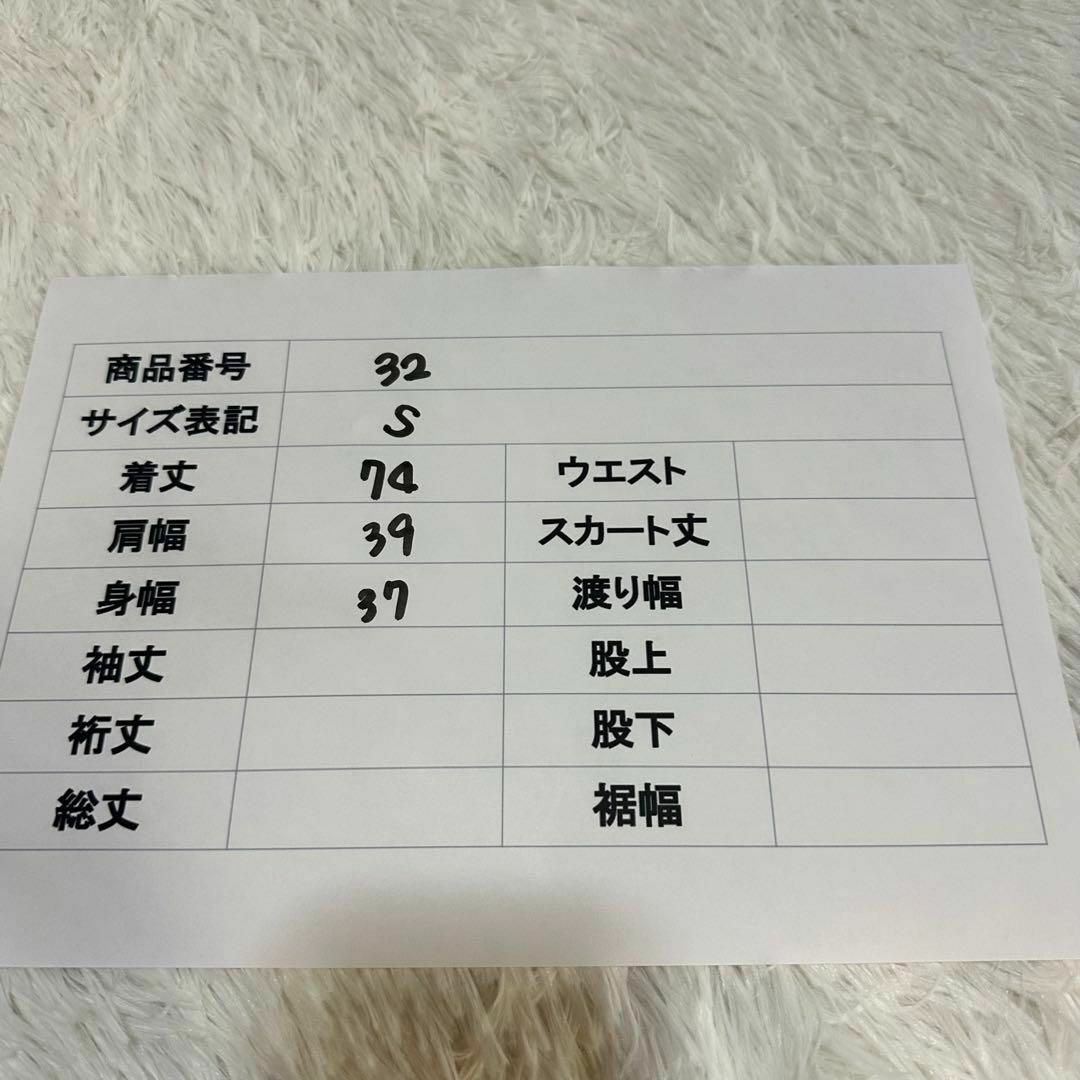 商品番号 32
サイズ表記 S
着丈 74 ウエスト
肩幅 39 スカート丈
身幅 37 渡り幅
袖丈 股上
裄丈 股下
総丈 裾幅